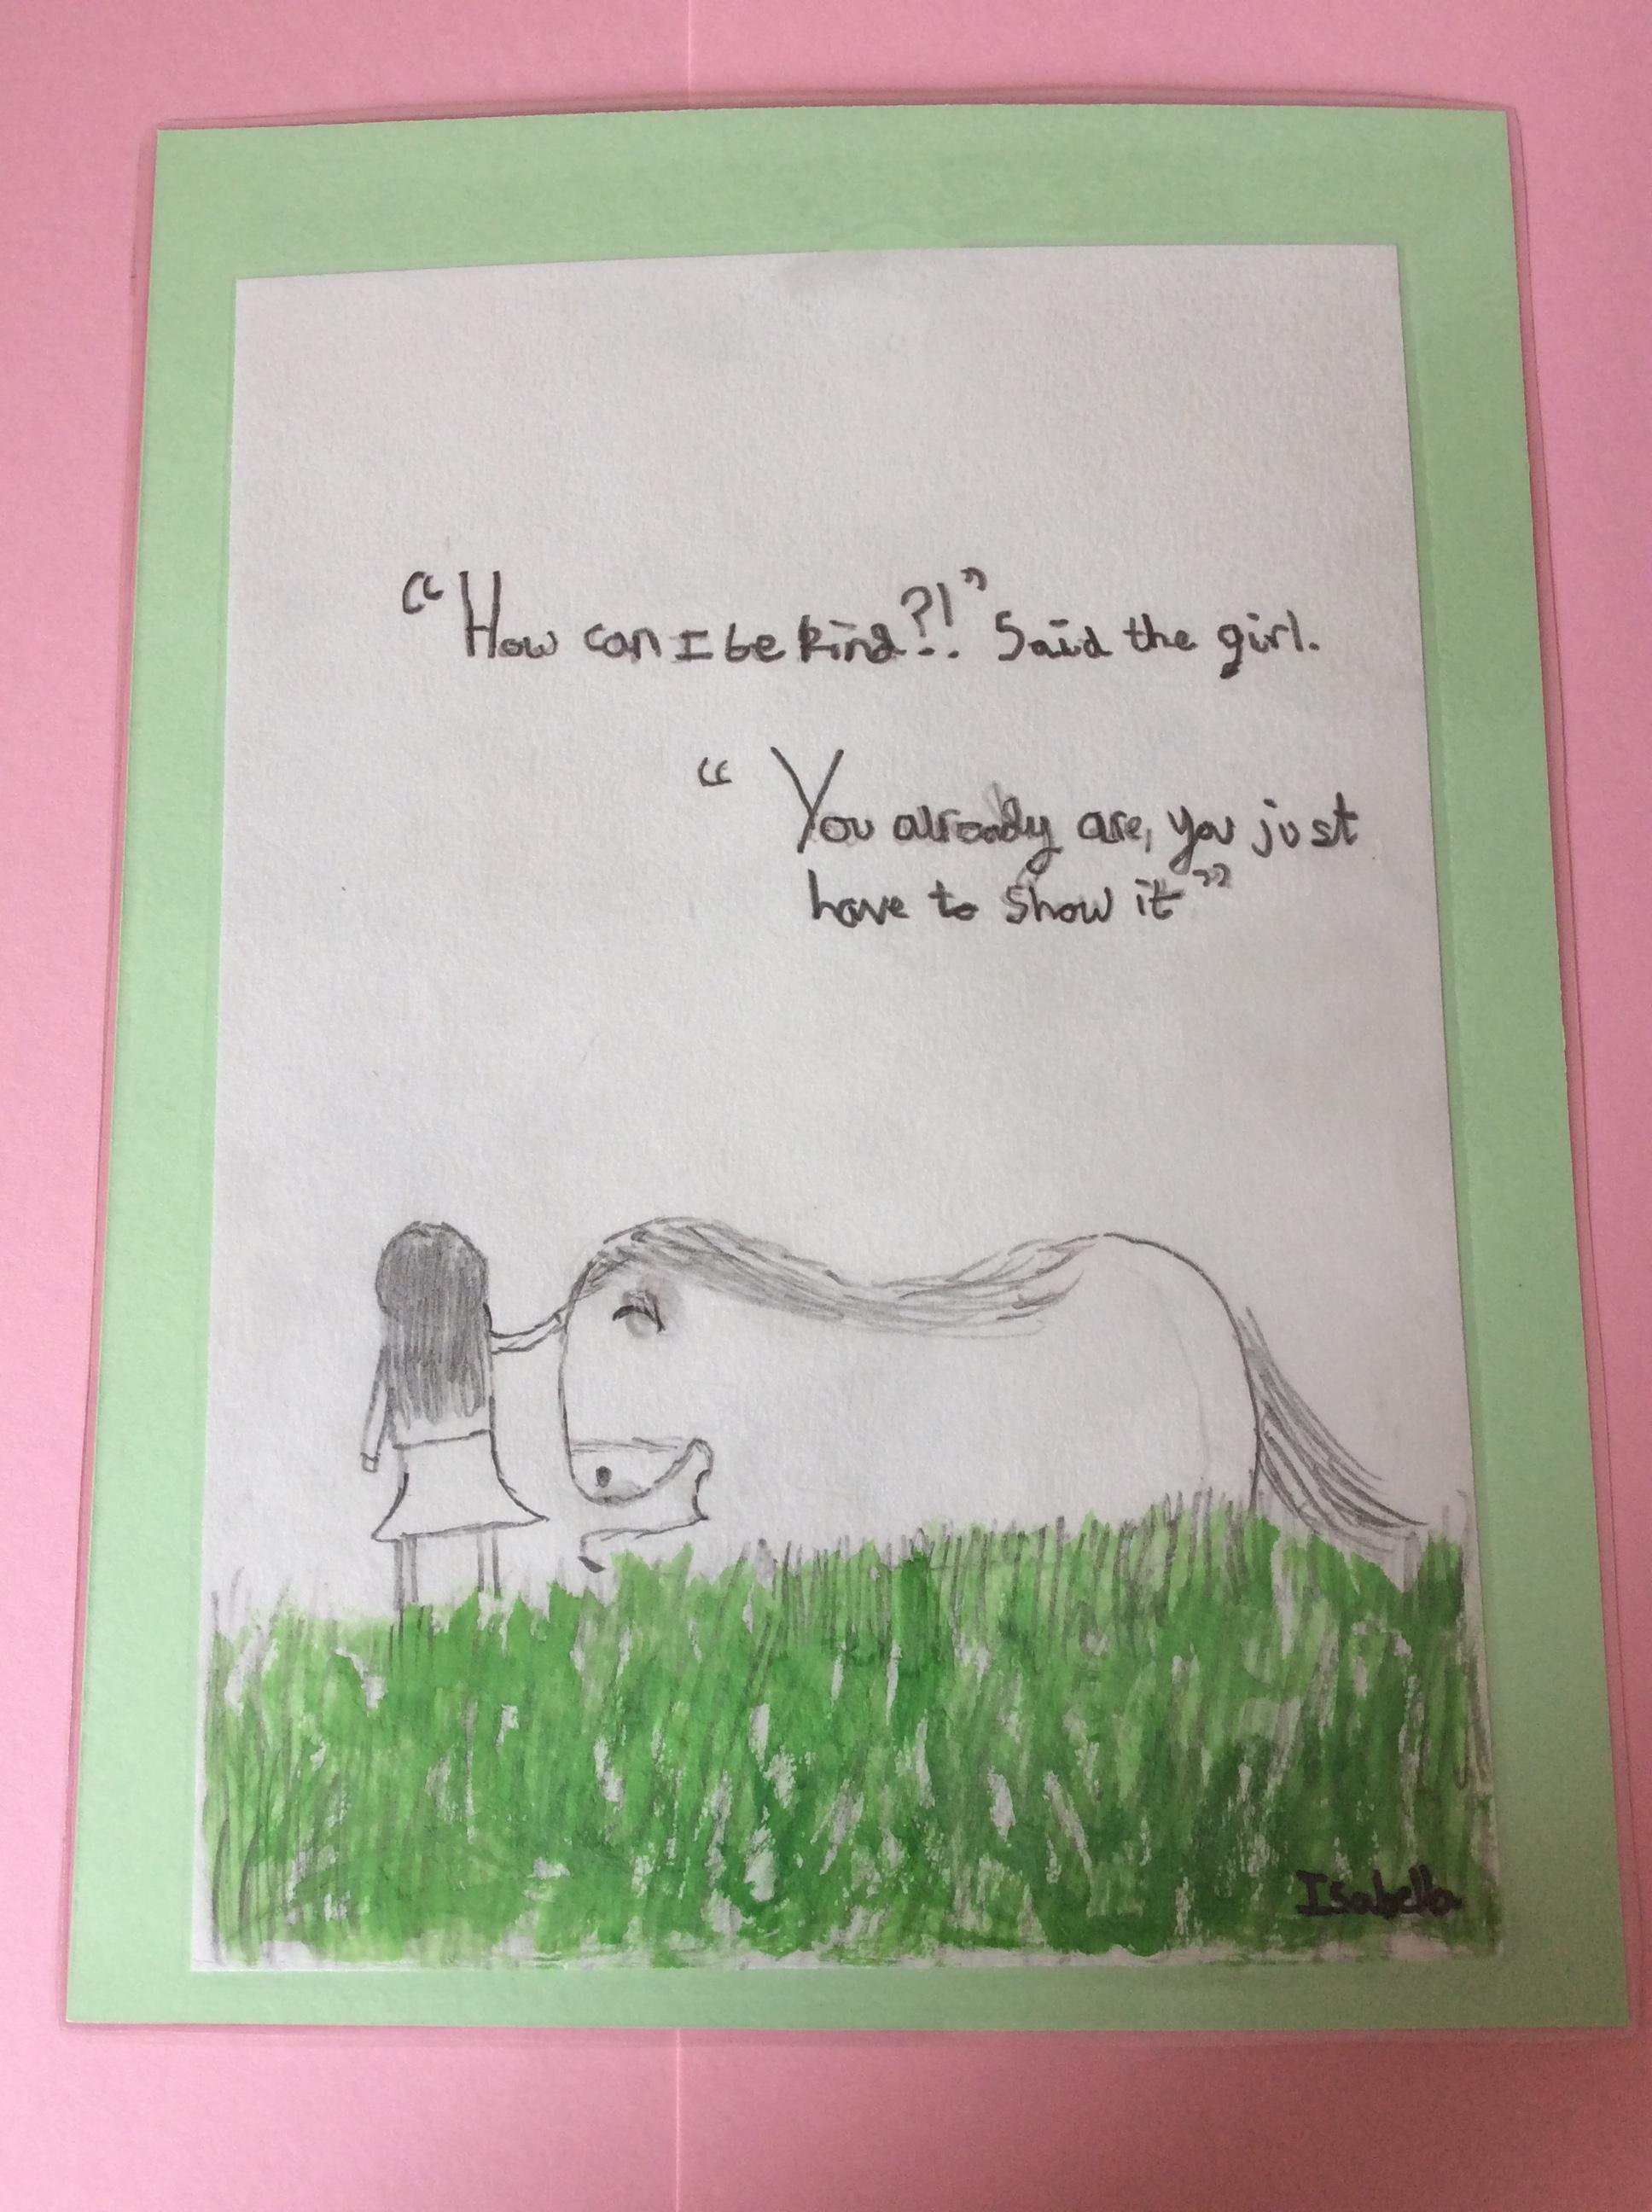 "How can I be kind?!" Said the girl.
"You already are, you just
have to show it"
Isabella